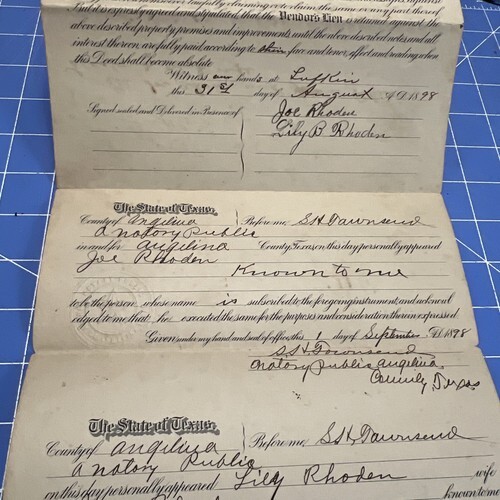 lawfully claiming or to claim the same or any part thereof
But it is expressly agreed and stipulated that the Vendors Lien is retained against the
above described property premises and improvements until the above described notes and all
interest thereon are fully paid according to their face and tenor, effect and reading when
this Deed shall become absolute
Witness our hands at Lufkin
this 31st day of August A.D. 1898
Signed sealed and Delivered in Presence of
Joe Rhoden
Lily B Rhoden
The State of Texas,
County of Angelina Before me S H Townsend
a notary Public
in and for Angelina County Texas on this day personally appeared
Joe Rhoden
Known to me
to be the person whose name is subscribed to the foregoing instrument, and acknowl
edged to me that he executed the same for the purposes and consideration therein expressed
Given under my hand and seal of office, this 1 day of September A.D. 1898
S H Townsend
Notary Public Angelina
County Texas
The State of Texas,
County of Angelina Before me S H Townsend
a notary Public
on this day personally appeared Lily Rhoden wife
Rhoden known to me